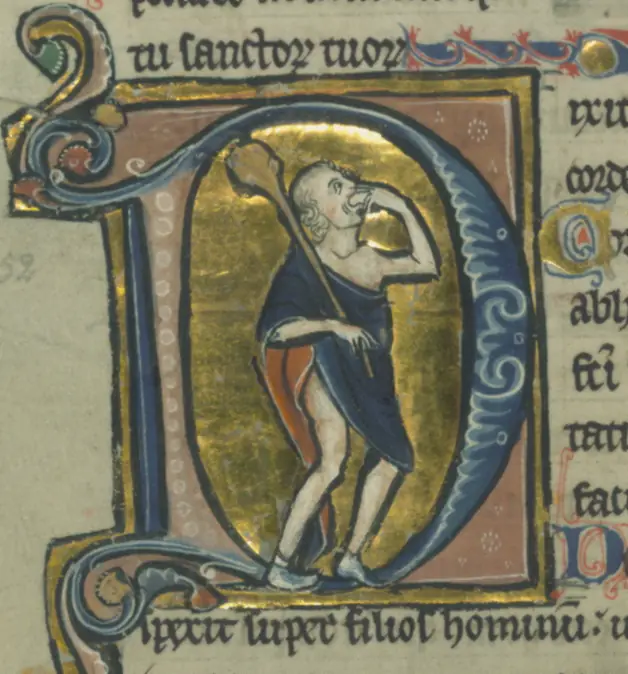 tu sanctoꝝ tuoꝝ
Dixit
corde
Cor
abh
fc̄i
tati
faci
D
spexit super filios hominū: u